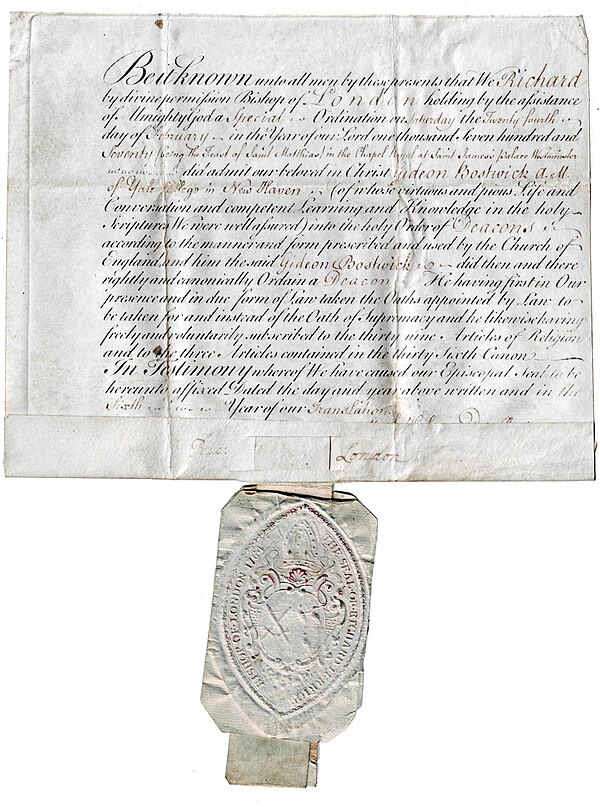 Be it known unto all men by these presents that We Richard
by divine permission Bishop of London holding by the assistance
of Almighty God a Special Ordination on Saturday the Twenty fourth
day of February in the Year of our Lord one thousand Seven hundred and
Seventy (being the Feast of Saint Matthias) in the Chapel Royal at Saint James's Palace Westminster
did admit our beloved in Christ Gideon Bostwick A.M.
of Yale College in New Haven (of whose virtuous and pious Life and
Conversation and competent Learning and Knowledge in the holy
Scriptures We were well assured) into the holy Order of Deacons
according to the manner and form prescribed and used by the Church of
England and him the said Gideon Bostwick did then and there
rightly and canonically Ordain a Deacon He having first in Our
presence and in due form of Law taken the Oaths appointed by Law to
be taken for and instead of the Oath of Supremacy and he likewise having
freely and voluntarily subscribed to the thirty nine Articles of Religion
and to the three Articles contained in the thirty Sixth Canon
In Testimony whereof We have caused our Episcopal Seal to be
hereunto affixed Dated the day and year above written and in the
Sixth Year of our Translation
London
THE SEAL OF RICHARD TERRICK
BISHOP OF LONDON